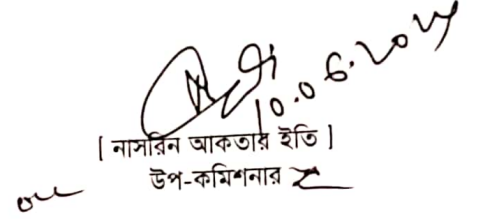 10.06.2024
[ নাসরিন আকতার ইতি ]
উপ-কমিশনার